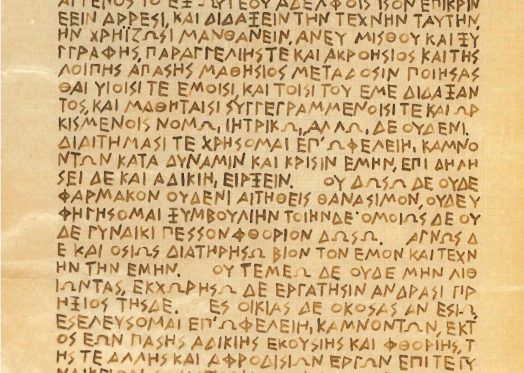 ΛΙ ΓΕΝΟΣ ΤΟ ΕΞ ΩΥΤΕΟΥ ΑΔΕΛΦΟΙΣ ΙΣΟΝ ΕΠΙΚΡΙΝ
ΕΕΙΝ ΑΡΡΕΣΙ, ΚΑΙ ΔΙΔΑΞΕΙΝ ΤΗΝ ΤΕΧΝΗΝ ΤΑΥΤΗΝ,
ΗΝ ΧΡΗΪΖΩΣΙ ΜΑΝΘΑΝΕΙΝ, ΑΝΕΥ ΜΙΣΘΟΥ ΚΑΙ ΞΥ
ΓΓΡΑΦΗΣ, ΠΑΡΑΓΓΕΛΙΗΣ ΤΕ ΚΑΙ ΑΚΡΟΗΣΙΟΣ ΚΑΙ ΤΗΣ
ΛΟΙΠΗΣ ΑΠΑΣΗΣ ΜΑΘΗΣΙΟΣ ΜΕΤΑΔΟΣΙΝ ΠΟΙΗΣΑΣ
ΘΑΙ ΥΙΟΙΣΙ ΤΕ ΕΜΟΙΣΙ, ΚΑΙ ΤΟΙΣΙ ΤΟΥ ΕΜΕ ΔΙΔΑΞΑΝ
ΤΟΣ, ΚΑΙ ΜΑΘΗΤΑΙΣΙ ΣΥΓΓΕΓΡΑΜΜΕΝΟΙΣΙ ΤΕ ΚΑΙ ΩΡ
ΚΙΣΜΕΝΟΙΣ ΝΟΜΩ, ΙΗΤΡΙΚΩ, ΑΛΛΩ, ΔΕ ΟΥΔΕΝΙ.
ΔΙΑΙΤΗΜΑΣΙ ΤΕ ΧΡΗΣΟΜΑΙ ΕΠ' ΩΦΕΛΕΙΗ, ΚΑΜΝΟ
ΝΤΩΝ ΚΑΤΑ ΔΥΝΑΜΙΝ ΚΑΙ ΚΡΙΣΙΝ ΕΜΗΝ, ΕΠΙ ΔΗΛΗ
ΣΕΙ ΔΕ ΚΑΙ ΑΔΙΚΙΗ, ΕΙΡΞΕΙΝ. ΟΥ ΔΩΣΩ ΔΕ ΟΥΔΕ
ΦΑΡΜΑΚΟΝ ΟΥΔΕΝΙ ΑΙΤΗΘΕΙΣ ΘΑΝΑΣΙΜΟΝ, ΟΥΔΕ Υ
ΦΗΓΗΣΟΜΑΙ ΞΥΜΒΟΥΛΙΗΝ ΤΟΙΗΝΔΕ· ΟΜΟΙΩΣ ΔΕ ΟΥ
ΔΕ ΓΥΝΑΙΚΙ ΠΕΣΣΟΝ ΦΘΟΡΙΟΝ ΔΩΣΩ. ΑΓΝΩΣ Δ
Ε ΚΑΙ ΟΣΙΩΣ ΔΙΑΤΗΡΗΣΩ ΒΙΟΝ ΤΟΝ ΕΜΟΝ ΚΑΙ ΤΕΧΝ
ΗΝ ΤΗΝ ΕΜΗΝ. ΟΥ ΤΕΜΕΩ ΔΕ ΟΥΔΕ ΜΗΝ ΛΙΘ
ΙΩΝΤΑΣ, ΕΚΧΩΡΗΣΩ ΔΕ ΕΡΓΑΤΗΣΙΝ ΑΝΔΡΑΣΙ ΠΡ
ΗΞΙΟΣ ΤΗΣΔΕ. ΕΣ ΟΙΚΙΑΣ ΔΕ ΟΚΟΣΑΣ ΑΝ ΕΣΙΩ,
ΕΣΕΛΕΥΣΟΜΑΙ ΕΠ' ΩΦΕΛΕΙΗ, ΚΑΜΝΟΝΤΩΝ, ΕΚΤ
ΟΣ ΕΩΝ ΠΑΣΗΣ ΑΔΙΚΙΗΣ ΕΚΟΥΣΙΗΣ ΚΑΙ ΦΘΟΡΙΗΣ, Τ
ΗΣ ΤΕ ΑΛΛΗΣ ΚΑΙ ΑΦΡΟΔΙΣΙΩΝ ΕΡΓΩΝ ΕΠΙ ΤΕ ΓΥ